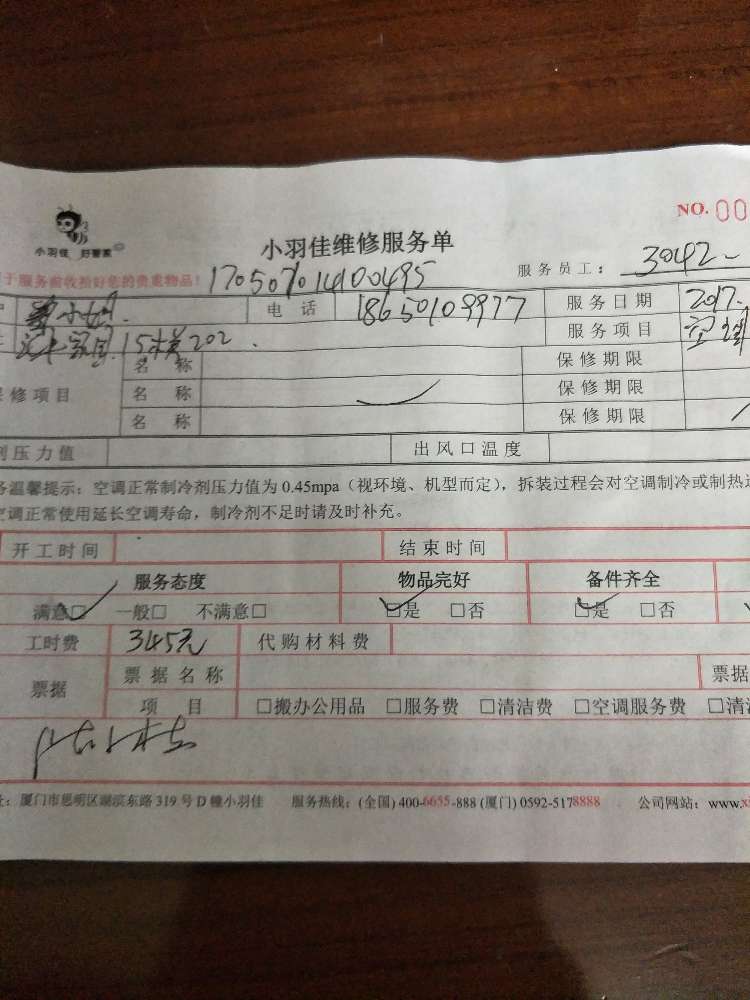 NO. 00
小羽佳 好管家
小羽佳维修服务单
于服务前收拾好您的贵重物品! 170507014100495 服务员工: 3042
小姐 电话 18650109977 服务日期 2017.
家园 15楼202 服务项目 空调
名称 保修期限
修项目 名称 保修期限
名称 保修期限
剂压力值 出风口温度
务温馨提示：空调正常制冷剂压力值为 0.45mpa（视环境、机型而定），拆装过程会对空调制冷或制热
空调正常使用延长空调寿命，制冷剂不足时请及时补充。
开工时间 结束时间
服务态度 物品完好 备件齐全
满意□ 一般□ 不满意□ □是 □否 □是 □否
工时费 345元 代购材料费
票据 票据名称 票据
项目 □搬办公用品 □服务费 □清洁费 □空调服务费 □清
址：厦门市思明区湖滨东路 319 号 D 幢小羽佳 服务热线：(全国) 400-6655-888 (厦门) 0592-5178888 公司网站：www.xi